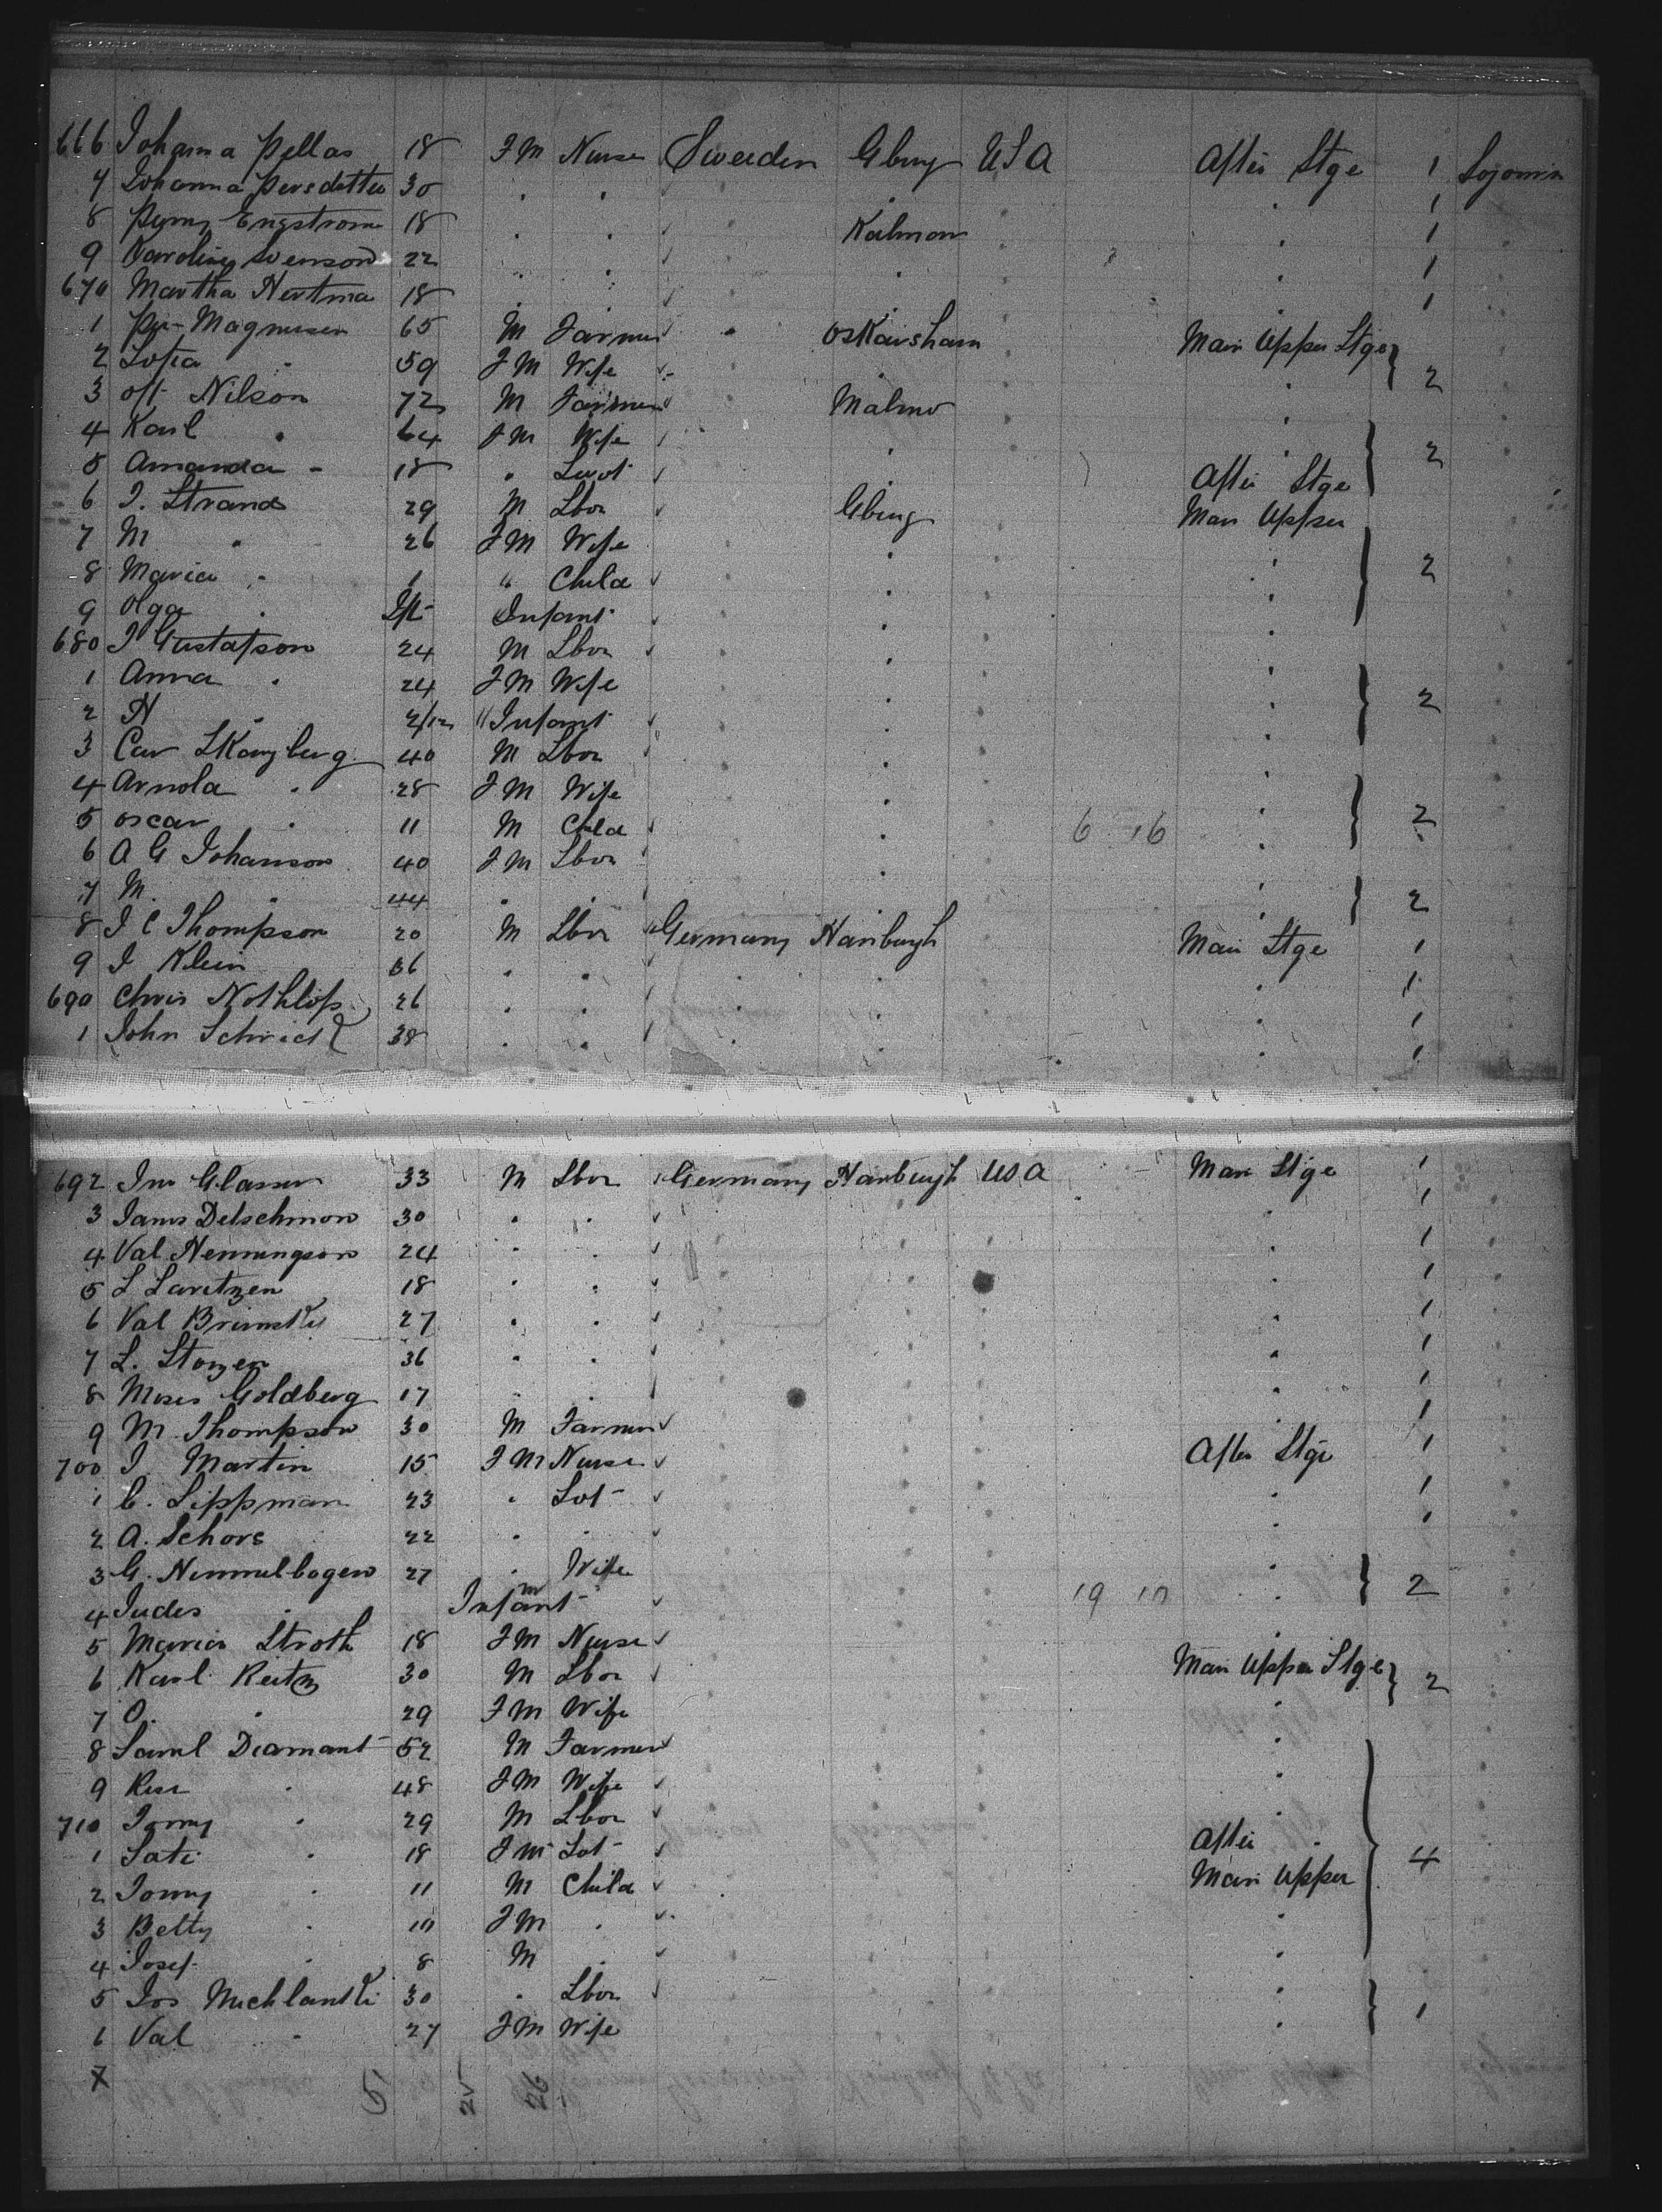 666 Johanna Pellas 18 F M Nurse Sweeden Gburg U S A After Stge 1 Sojourn
7 Johanna Persdotter 30 " " " " 1
8 Engstrom 18 " " Kalmar " 1
9 Karolina Svenson 22 " " " " 1
670 Martha Hertma 18 " " " " 1
1 Per Magnusen 65 M Farmer " Oskarsham Main Upper Stge
2 Sofia " 59 F M Wife " " 2
3 Nilson 72 M Farmer Malmo "
4 Karl " 64 F M Wife " " 2
5 Amanda " 18 " " After Stge
6 J. Strand 29 M Lbor Gburg Main Upper
7 M " 26 F M Wife " "
8 Maria " 1 " Child " " 2
9 Olga " Inft Infant " "
680 J Gustafson 24 M Lbor " "
1 Anna " 24 F M Wife " " 2
2 N " 2/12 " Infant " "
3 Car Skonzberg 40 M Lbor " "
4 Arnola " 28 F M Wife " "
5 Oscar " 11 M Chld " 6 16 " 2
6 A G Johanson 40 F M Lbor " "
7 M. " 44 " " " " 2
8 J C Thompson 20 M Lbor Germany Hamburgh Main Stge 1
9 J Klein 36 " " " " " 1
690 Chris Nothlops 26 " " " " " 1
1 John Schmidt 38 " " " " " 1
692 Jno Glasser 33 M Lbor Germany Hamburgh U S A Main Stge 1
3 James Delschmon 30 " " " " " " 1
4 Val Henningson 24 " " " " " " 1
5 L Laritzen 18 " " " " " " 1
6 Val Brimski 27 " " " " " " 1
7 L. Stozen 36 " " " " " " 1
8 Moses Goldberg 17 " " " " " " 1
9 M. Thompson 30 M Farmer " " " " 1
700 J. Martin 15 F M Nurse " " " After Stge 1
1 C. Lippman 23 " " " " " 1
2 A. Schors 22 " " " " " " 1
3 G. Nimmelbogen 27 " Wife " " " "
4 Judes " Infant m " " " 19 10 " 2
5 Maria Stroth 18 F M Nurse " " " "
6 Karl Reitz 30 M Lbor " " " Main Upper Stge 2
7 O. " 29 F M Wife " " " "
8 Saml Diamant 52 M Farmer " " " "
9 " 48 F M Wife " " " "
710 " 29 M Lbor " " " "
1 Sati " 18 F M " " " After "
2 " 11 M Child " " " Main Upper 4
3 Betty " 10 F M " " " " "
4 Josef " 8 M " " " " "
5 Jos Michlanski 30 " Lbor " " " "
6 Val " 27 F M Wife " " " " 1
7
5 25 26